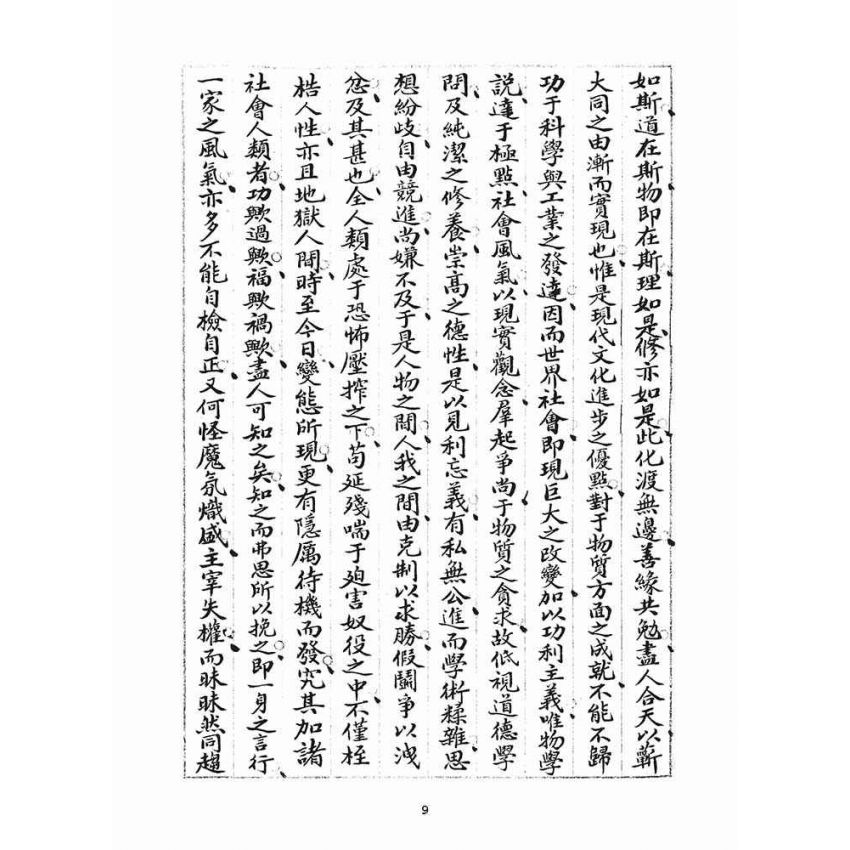 如斯道在斯物即在斯理如是修亦如是此化渡無邊善緣共勉盡人合天以蘄
大同之由漸而實現也惟是現代文化進步之優點對于物質方面之成就不能不歸
功于科學與工業之發達因而世界社會即現巨大之改變加以功利主義唯物學
說達于極點社會風氣以現實觀念羣起爭尚于物質之貪求故低視道德學
問及純潔之修養崇高之德性是以見利忘義有私無公進而學術糅雜思
想紛歧自由競進尚嫌不及于是人物之間人我之間由克制以求勝假鬭爭以洩
忿及其甚也全人類處于恐怖壓搾之下苟延殘喘于廹害奴役之中不僅桎
梏人性亦且地獄人間時至今日變態所現更有隱厲待機而發究其加諸
社會人類者功歟過歟福歟禍歟盡人可知之矣知之而弗思所以挽之即一身之言行
一家之風氣亦多不能自檢自正又何怪魔氛熾盛主宰失權而昧昧然同趨
9